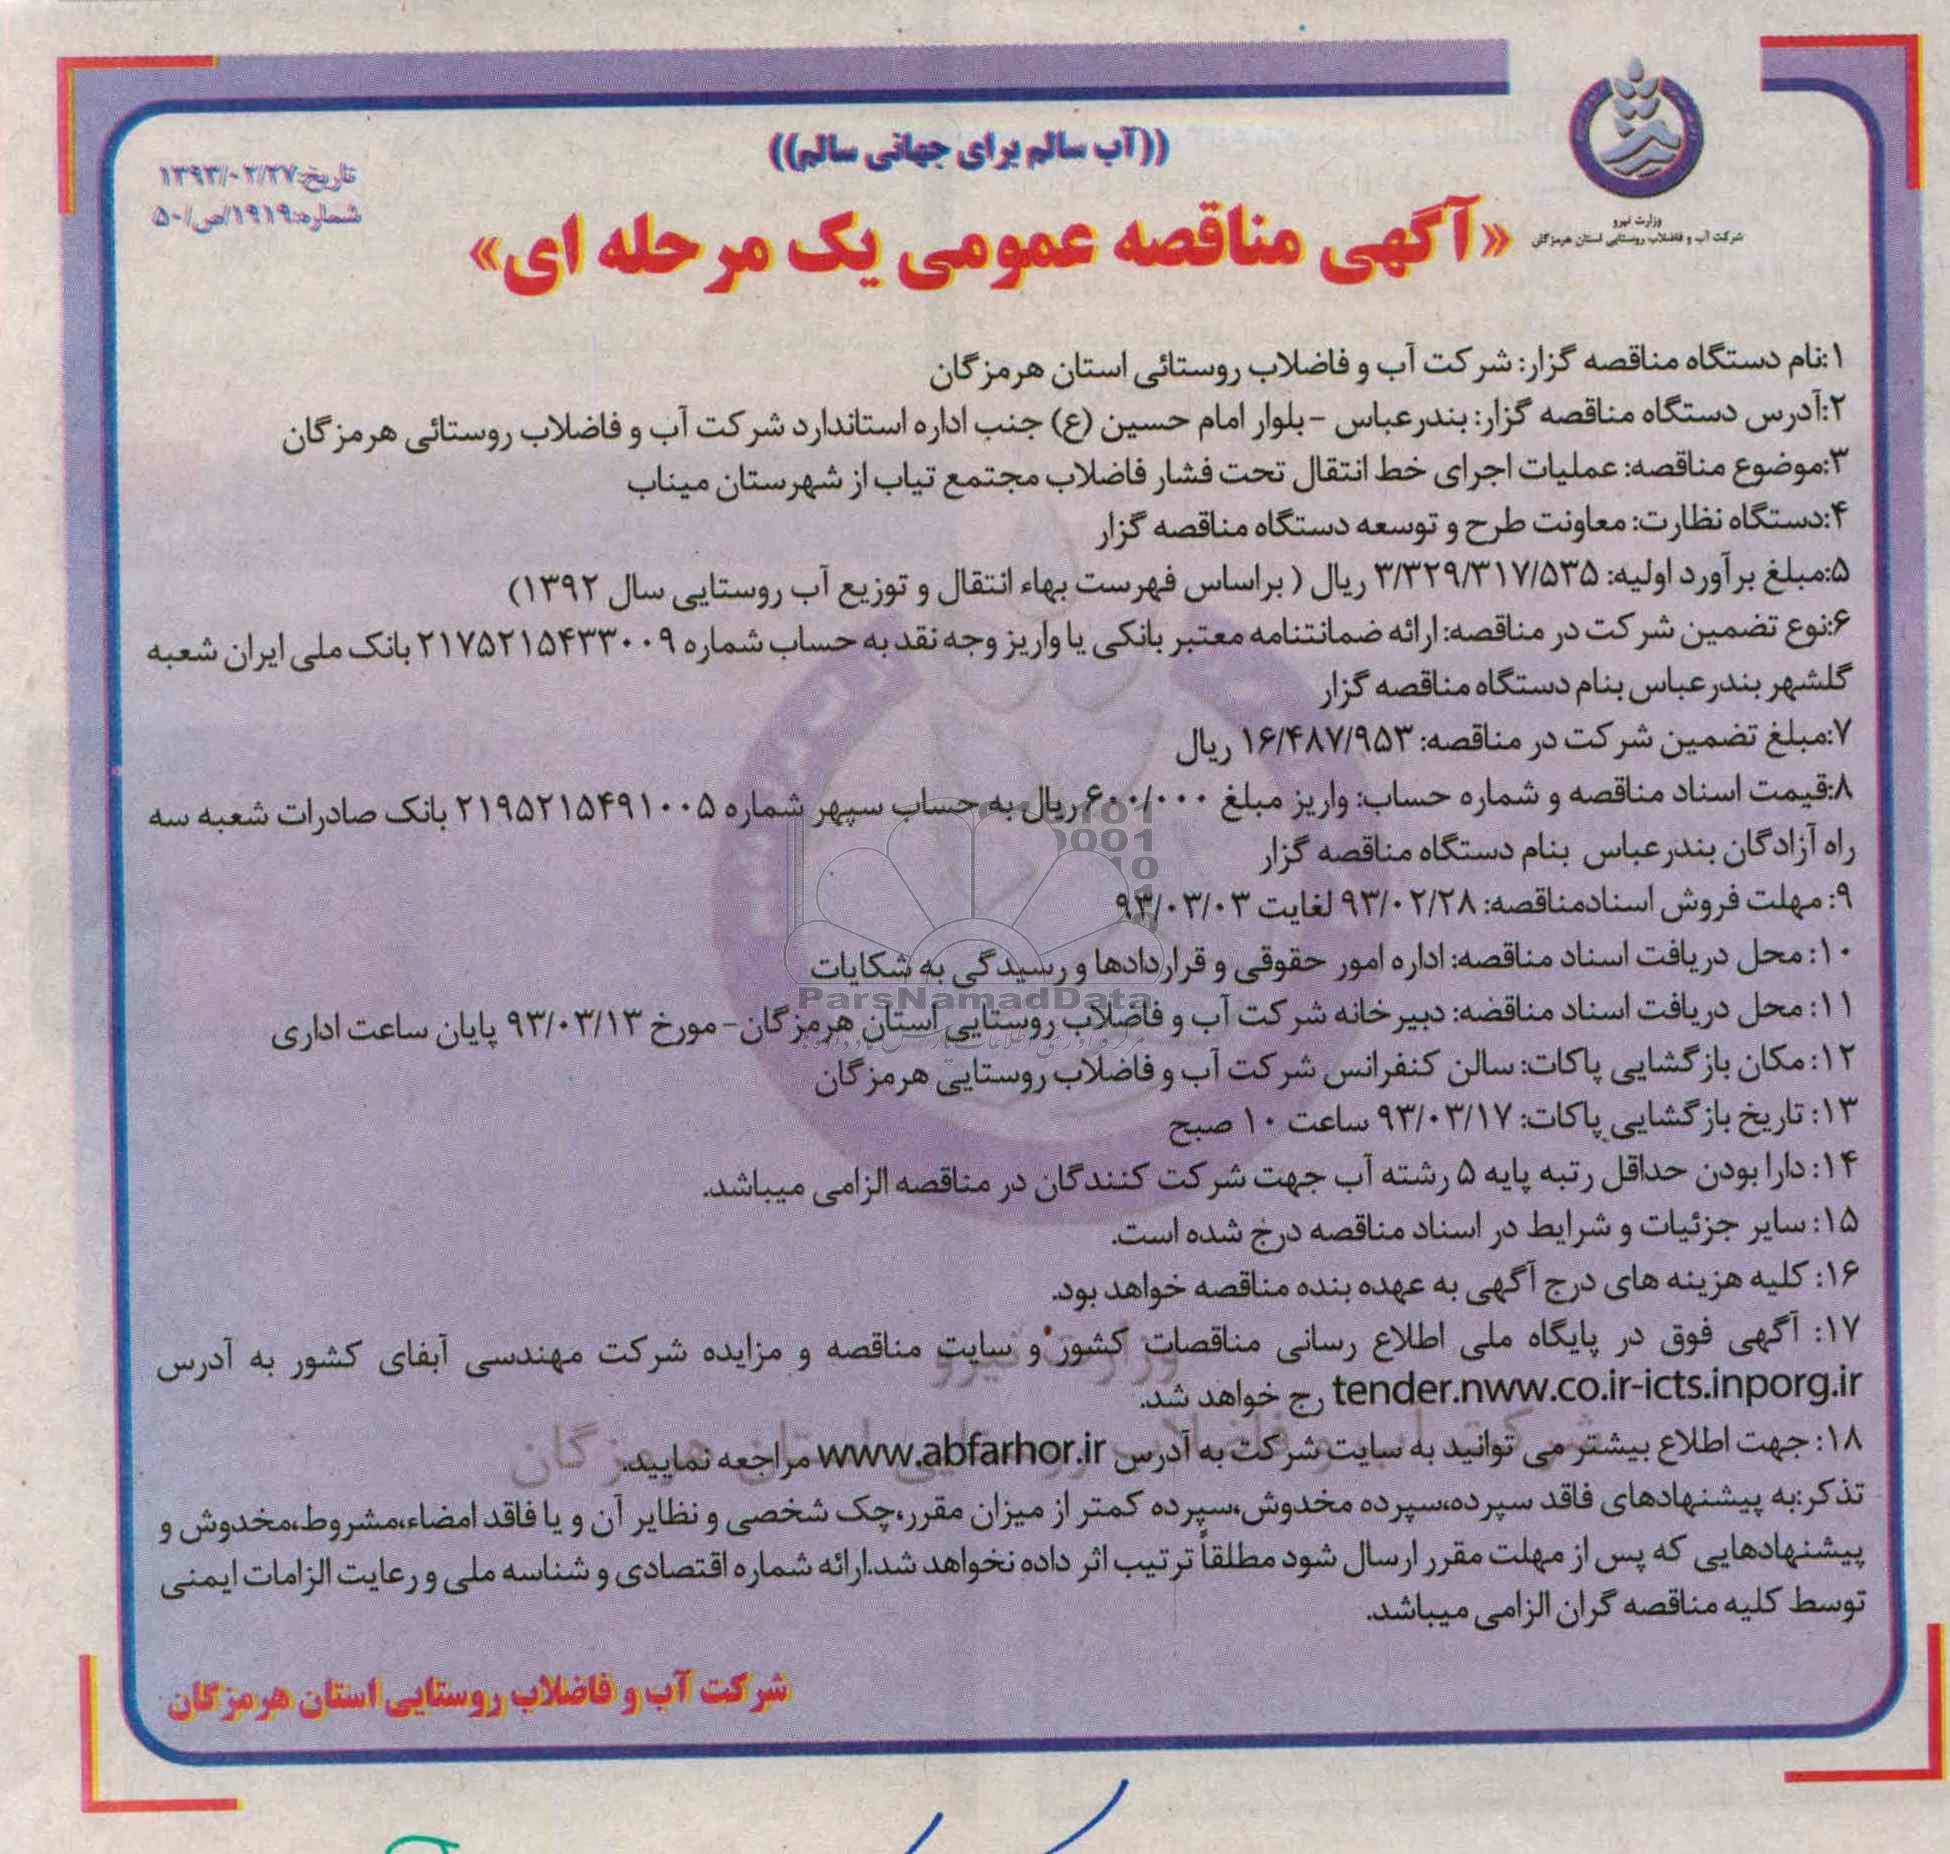 ((آب سالم برای جهانی سالم))
وزارت نیرو
شرکت آب و فاضلاب روستایی استان هرمزگان
تاریخ:۱۳۹۳/۰۲/۲۷
شماره:۱۹۱۹/ص/۵۰
«آگهی مناقصه عمومی یک مرحله ای»
۱:نام دستگاه مناقصه گزار: شرکت آب و فاضلاب روستائی استان هرمزگان
۲:آدرس دستگاه مناقصه گزار: بندرعباس -بلوار امام حسین (ع) جنب اداره استاندارد شرکت آب و فاضلاب روستائی هرمزگان
۳:موضوع مناقصه: عملیات اجرای خط انتقال تحت فشار فاضلاب مجتمع تیاب از شهرستان میناب
۴:دستگاه نظارت: معاونت طرح و توسعه دستگاه مناقصه گزار
۵:مبلغ برآورد اولیه: ۳/۳۲۹/۳۱۷/۵۳۵ ریال ( براساس فهرست بهاء انتقال و توزیع آب روستایی سال ۱۳۹۲)
۶:نوع تضمین شرکت در مناقصه: ارائه ضمانتنامه معتبر بانکی یا واریز وجه نقد به حساب شماره ۲۱۷۵۲۱۵۴۳۳۰۰۹ بانک ملی ایران شعبه
گلشهر بندرعباس بنام دستگاه مناقصه گزار
۷:مبلغ تضمین شرکت در مناقصه: ۱۶/۴۸۷/۹۵۳ ریال
۸:قیمت اسناد مناقصه و شماره حساب: واریز مبلغ ۶۰۰/۰۰۰ ریال به حساب سپهر شماره ۲۱۹۵۲۱۵۴۹۱۰۰۵ بانک صادرات شعبه سه
راه آزادگان بندرعباس بنام دستگاه مناقصه گزار
۹: مهلت فروش اسنادمناقصه: ۹۳/۰۲/۲۸ لغایت ۹۳/۰۳/۰۳
۱۰: محل دریافت اسناد مناقصه: اداره امور حقوقی و قراردادها و رسیدگی به شکایات
ParsNamadData
۱۱: محل دریافت اسناد مناقصه: دبیرخانه شرکت آب و فاضلاب روستایی استان هرمزگان- مورخ ۹۳/۰۳/۱۳ پایان ساعت اداری
۱۲: مکان بازگشایی پاکات: سالن کنفرانس شرکت آب و فاضلاب روستایی هرمزگان
۱۳: تاریخ بازگشایی پاکات: ۹۳/۰۳/۱۷ ساعت ۱۰ صبح
۱۴: دارا بودن حداقل رتبه پایه ۵ رشته آب جهت شرکت کنندگان در مناقصه الزامی میباشد.
۱۵: سایر جزئیات و شرایط در اسناد مناقصه درج شده است.
۱۶: کلیه هزینه های درج آگهی به عهده بنده مناقصه خواهد بود.
۱۷: آگهی فوق در پایگاه ملی اطلاع رسانی مناقصات کشور و سایت مناقصه و مزایده شرکت مهندسی آبفای کشور به آدرس
tender.nww.co.ir-icts.inporg.ir رج خواهد شد.
۱۸: جهت اطلاع بیشتر می توانید به سایت شرکت به آدرس www.abfarhor.ir مراجعه نمایید.
تذکر:به پیشنهادهای فاقد سپرده،سپرده مخدوش،سپرده کمتر از میزان مقرر،چک شخصی و نظایر آن و یا فاقد امضاء،مشروط،مخدوش و
پیشنهادهایی که پس از مهلت مقرر ارسال شود مطلقاً ترتیب اثر داده نخواهد شد.ارائه شماره اقتصادی و شناسه ملی و رعایت الزامات ایمنی
توسط کلیه مناقصه گران الزامی میباشد.
شرکت آب و فاضلاب روستایی استان هرمزگان